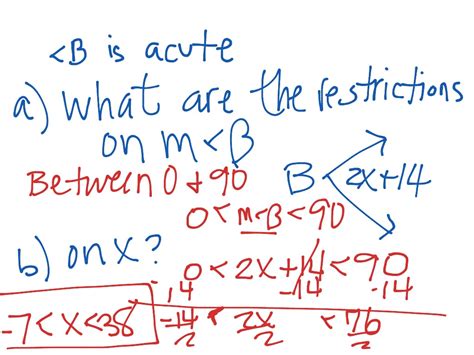 <B is acute
a) what are the restrictions
on m<B
Between 0 & 90
B 2x+14
0 < m<B < 90
b) on x?
0 < 2x+14 < 90
-14 -14 -14
-7 < x < 38
-14 < 2x < 76
2 2 2